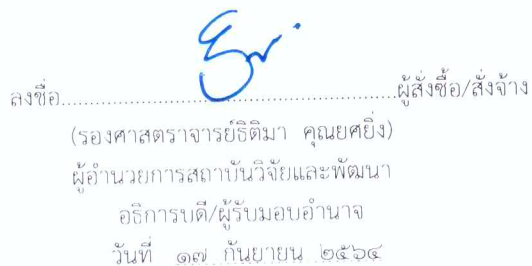 ลงชื่อ............................................................ผู้สั่งซื้อ/สั่งจ้าง
(รองศาสตราจารย์ธิติมา คุณยศยิ่ง)
ผู้อำนวยการสถาบันวิจัยและพัฒนา
อธิการบดี/ผู้รับมอบอำนาจ
วันที่ ๑๗ กันยายน ๒๕๖๔